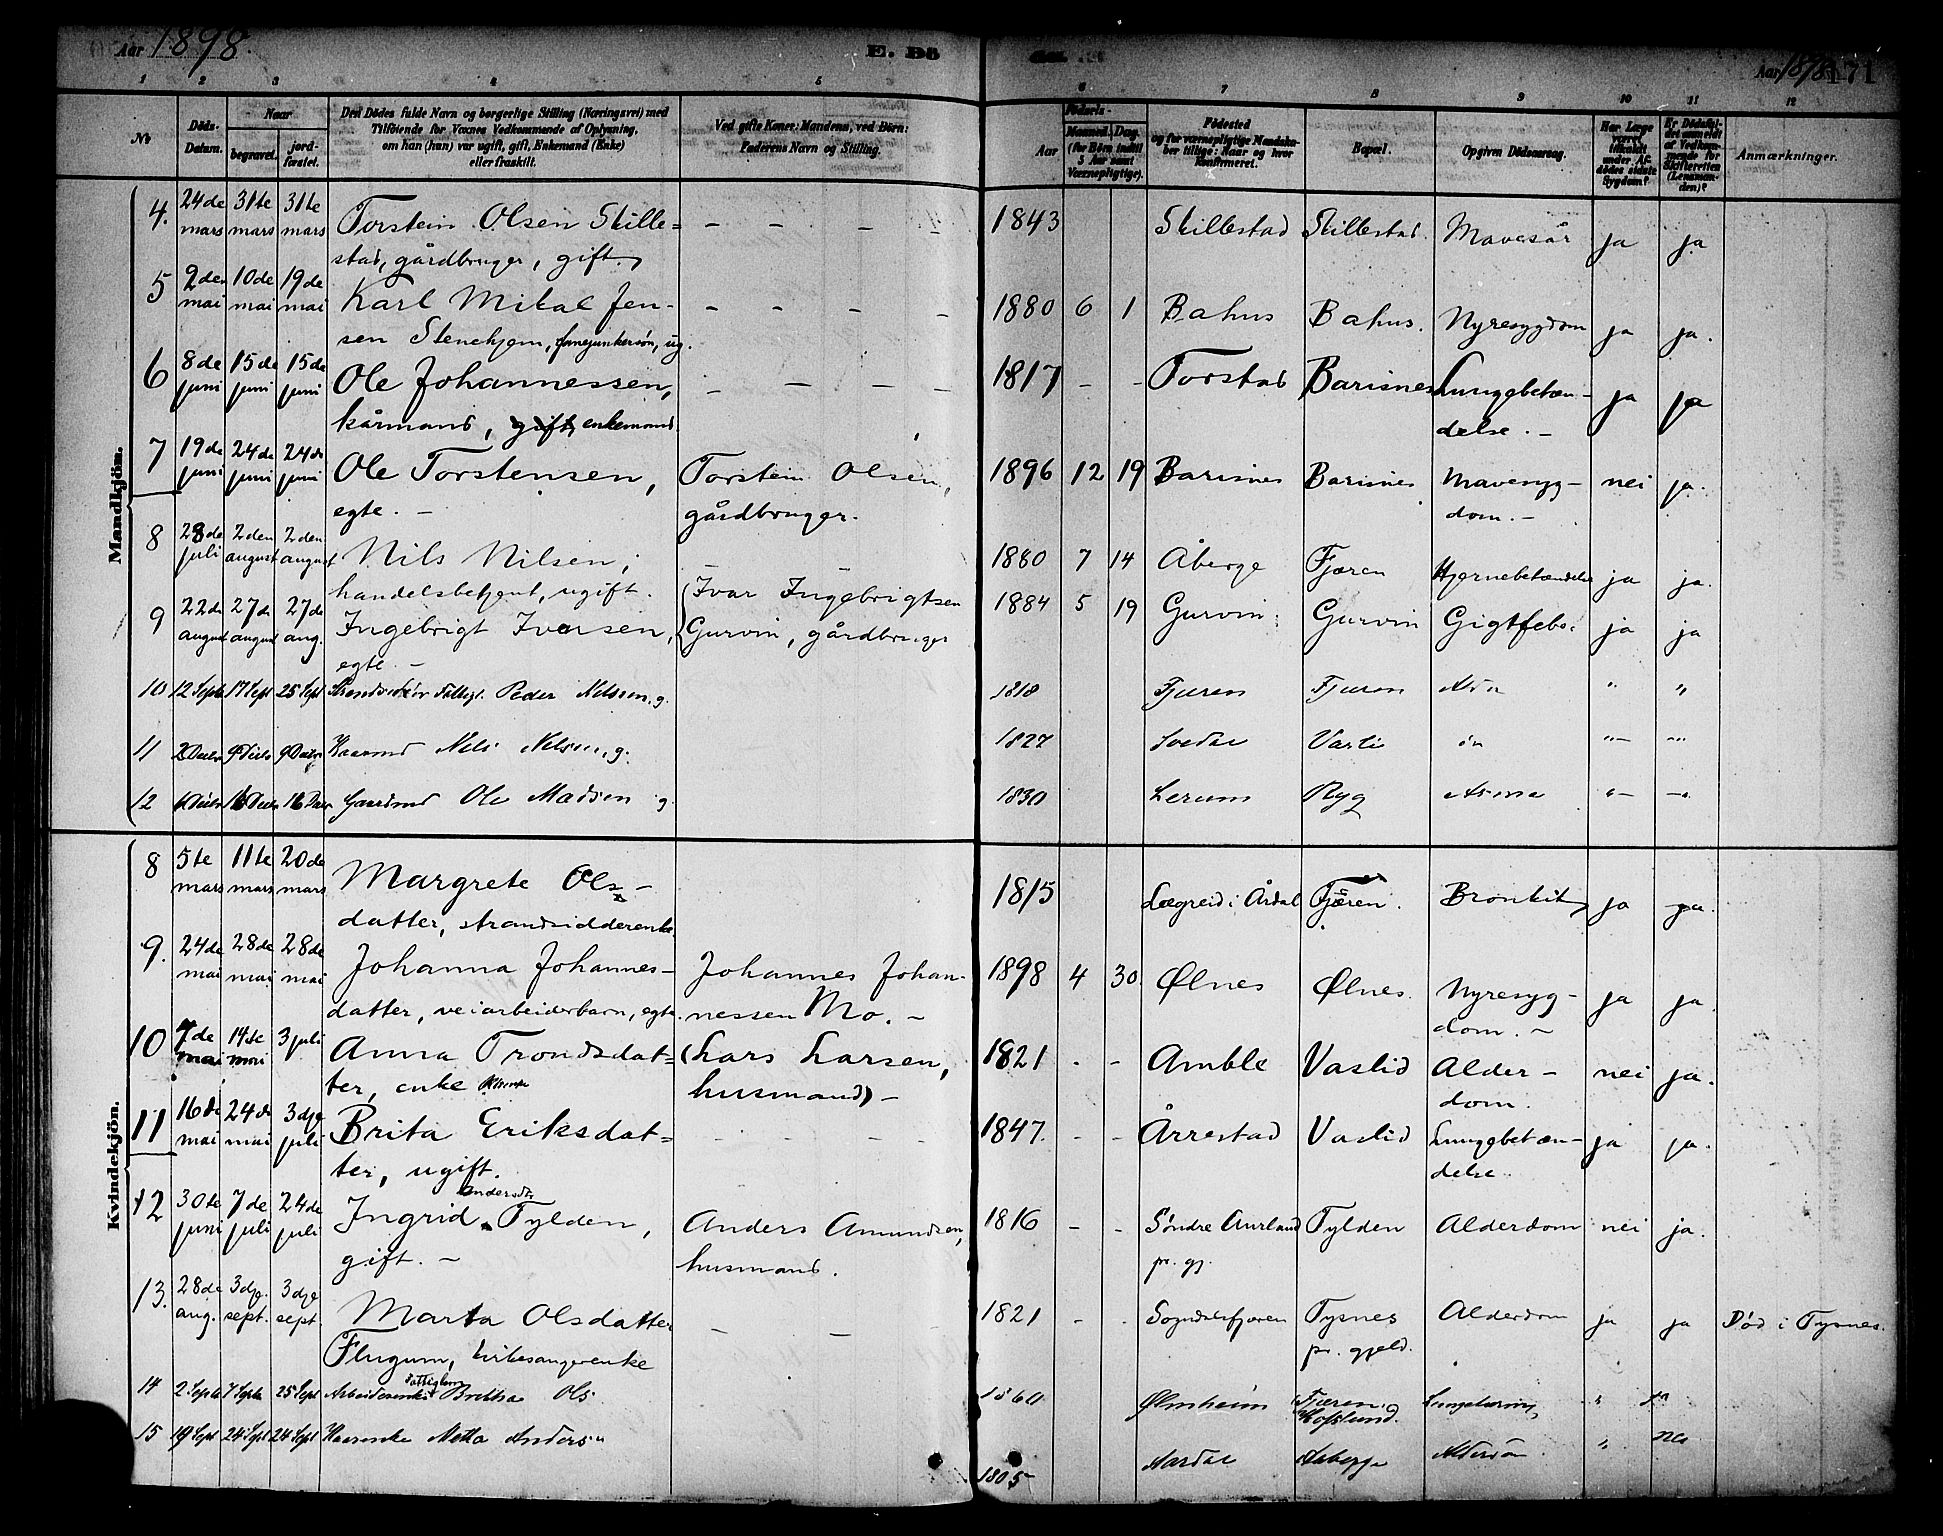 Aar 1898.
E. Dö
Aar 1898
171
1 2 3 4 5 6 7 8 9 10 11 12
No
Döds-Datum.
Naar
begravet.
jordfæstet.
Den Dödes fulde Navn og borgerlige Stilling (Næringsvei) med
Tilföiende for Voxnes Vedkommende af Oplysning,
om han (hun) var ugift, gift, Enkemand (Enke)
eller fraskilt.
Ved gifte Koner: Mandens, ved Börn:
Faderens Navn og Stilling.
Födsels-
Aar
Maaned. Dag.
(for Börn indtil
5 Aar samt
Værnepligtige).
Födested
og for værnepligtige Mandskaber tillige: Naar og hvor
konfirmeret.
Bopæl.
Opgiven Dödsaarsag.
Har Læge
været
tilkaldt
under Afdödes sidste
Sygdom?
Er Dödsfaldet anmeldt
af Vedkommende for
Skifteretten
(Lensmanden)?
Anmærkninger.
Mandkjön.
4. 24de mars 31te mars 31te mars Torstein Olsen Skille=
stad, gårdbruger, gift. – – – – 1843 Skillestad Skillestad. Mavesår ja ja
5 2den mai 10de mai 19de mai Karl Mikal Jen-
sen Stenehjem, fanejunkersøn, ug. – – – – 1880 6 1 Bahus Bahus. Nyresygdom ja ja.
6 8de juni 15de juni 15de juni Ole Johannessen,
kårmand, gift, enkemand. – – – – 1817 – – Torstad Barisnes Lungebetæn-
delse. – ja ja
7 19de juni 24de juni 24de juni Ole Torstensen,
egte. – Torstein Olsen,
gårdbruger. 1896 12 19 Barisnes Barisnes Mavesyg-
dom. – nei ja.
8 28de juli 2den august 2den august Nils Nilsen,
handelsbetjent, ugift. – – 1880 7 14 Åberge Fjæren Hjernebetændelse ja ja.
9 22de august 27de august 27de aug. Ingebrigt Iversen,
egte. – Ivar Ingebrigtsen
Gurvin, gårdbruger 1884 5 19 Gurvin Gurvin Gigtfeber ja ja
10 12 Septb 17 Sept 25 Sept Peder Nilssen, g. 1818 Fjæren Fjæren " "
11 2 Decbr 9 Decbr 9 Decbr Kaarmd Nils Nilssen, g. 1827 Vasli "– "–
12 6 Decbr 16 Decbr 16 Decbr Gaardmd Ole Madsen g 1830 Lerum Ryg "– –"
Kvindekjön.
8 5te mars 11te mars 20de mars Margrete Ols-
datter, strandsidderenke 1815 Lægreid i Årdal Fjæren. Bronkit ja ja.
9. 24de mai 28de mai 28de mai Johanna Johannes-
datter, veiarbeiderbarn, egte. Johannes Johan-
nessen Mo. – 1898 4 30. Ølnes Ølnes. Nyresyg-
dom. – ja ja.
10 7de mai 14te mai 3 juli Anna Trondsdat=
ter, enke (Lars Larsen,
husmand) – 1821 – – Amble Vaslid Alder-
dom. nei ja.
11 16de mai 24de mai 3dje juli Brita Eriksdat=
ter, ugift. – – – – 1847. – – Årrestad Vaslid Lungebetæn-
delse ja ja.
12 30te juni 7de juli 24de juli Ingrid Andersdtr Tylden,
gift. – Anders Amundsen,
husmand. 1816 – – Søndre Aurland
pr. gj. Tylden Alderdom nei ja.
13. 28de aug. 3dje. sept. 3dje sept. Marta Olsdatter
Flugum, kirkesangerenke – – – 1821 – – Sogndalsfjæren Tysnes
pr. gjeld. Alderdom ja ja Død i Tysnes.
14 2 Septb 7 Septb 25 Sept Arbeiderenke Brittha Ols 1860 Ølmheim Fjæren
"
15 19 Sept 24 Sept 24 Sept Kaarenke Metta Anders 1805 Aardal Aaberge Alderdom " nei